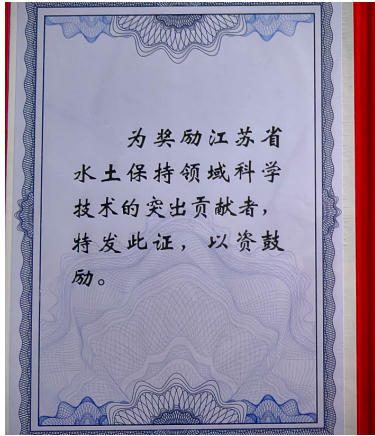 为奖励江苏省
水土保持领域科学
技术的突出贡献者，
特发此证，以资鼓
励。